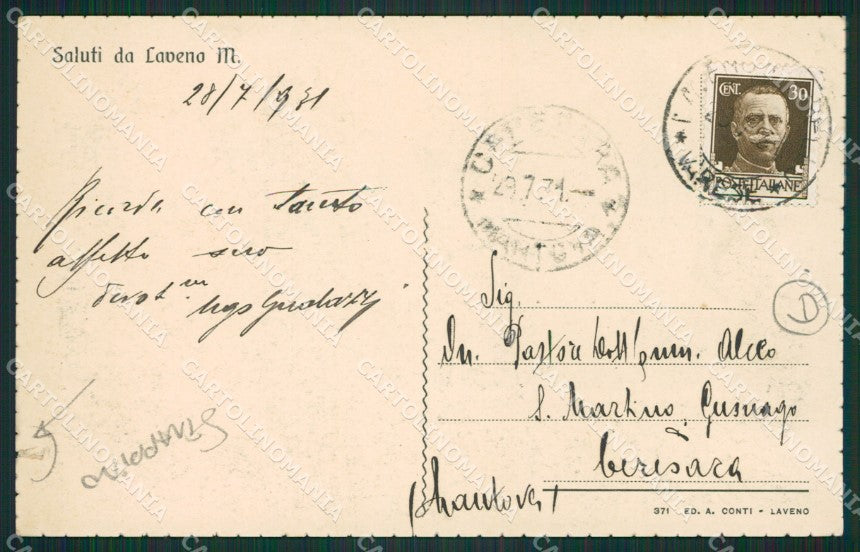 Saluti da Laveno M.
28/7/931
Ricorda con tanto
affetto suo
devot.mo Ugo
CENT. 30
POSTE ITALIANE
VARESE
CERESARA
29.7.31
MANTOVA
Sig.
On. Pastore Dott. Comm. Alceo
S. Martino Gusnago
Ceresara
(Mantova)
D
371 ED. A. CONTI - LAVENO
CARTOLINOMANIA